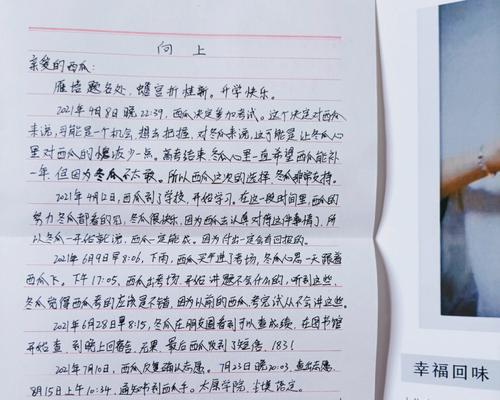 向上
亲爱的西瓜：
雁塔题名处，蟾宫折桂新。开学快乐。
2021年4月8日晚22:39，西瓜决定参加考试。这个决定对西瓜
来说，可能是一个机会，想去把握，对冬瓜来说，这可能是让冬瓜心
里对西瓜的愧疚少一点。高考结束，冬瓜心里一直希望西瓜能补
一年，但因为冬瓜不敢。所以西瓜这次的选择，冬瓜非常支持。
2021年4月12日，西瓜到了学校，开始学习。在这一段时间里，西瓜的
努力冬瓜都看的见，冬瓜很快乐，因为西瓜去认真对待这件事情了，所
以冬瓜一开始就说，西瓜一定能成。因为付出一定会有回报的。
2021年6月9日早8:06，下雨，西瓜进了考场，冬瓜心思一天跟着
西瓜下。下午17:05，西瓜出考场，开始讲题不会什么的，听到这些，
冬瓜觉得西瓜考的应该是不错，因为以前的西瓜，考完试从不会讲这些。
2021年6月28日早8:15，冬瓜在朋友圈看到可以查成绩，在图书馆
开始查，到晚上回宿舍，无果，最后西瓜收到了短信，183！
2021年7月10日，西瓜反复确认志愿。7月23日晚20:03，查出志愿，
8月15日上午10:34，通知书到西瓜手。太原学院，尘埃落定。
幸福回味